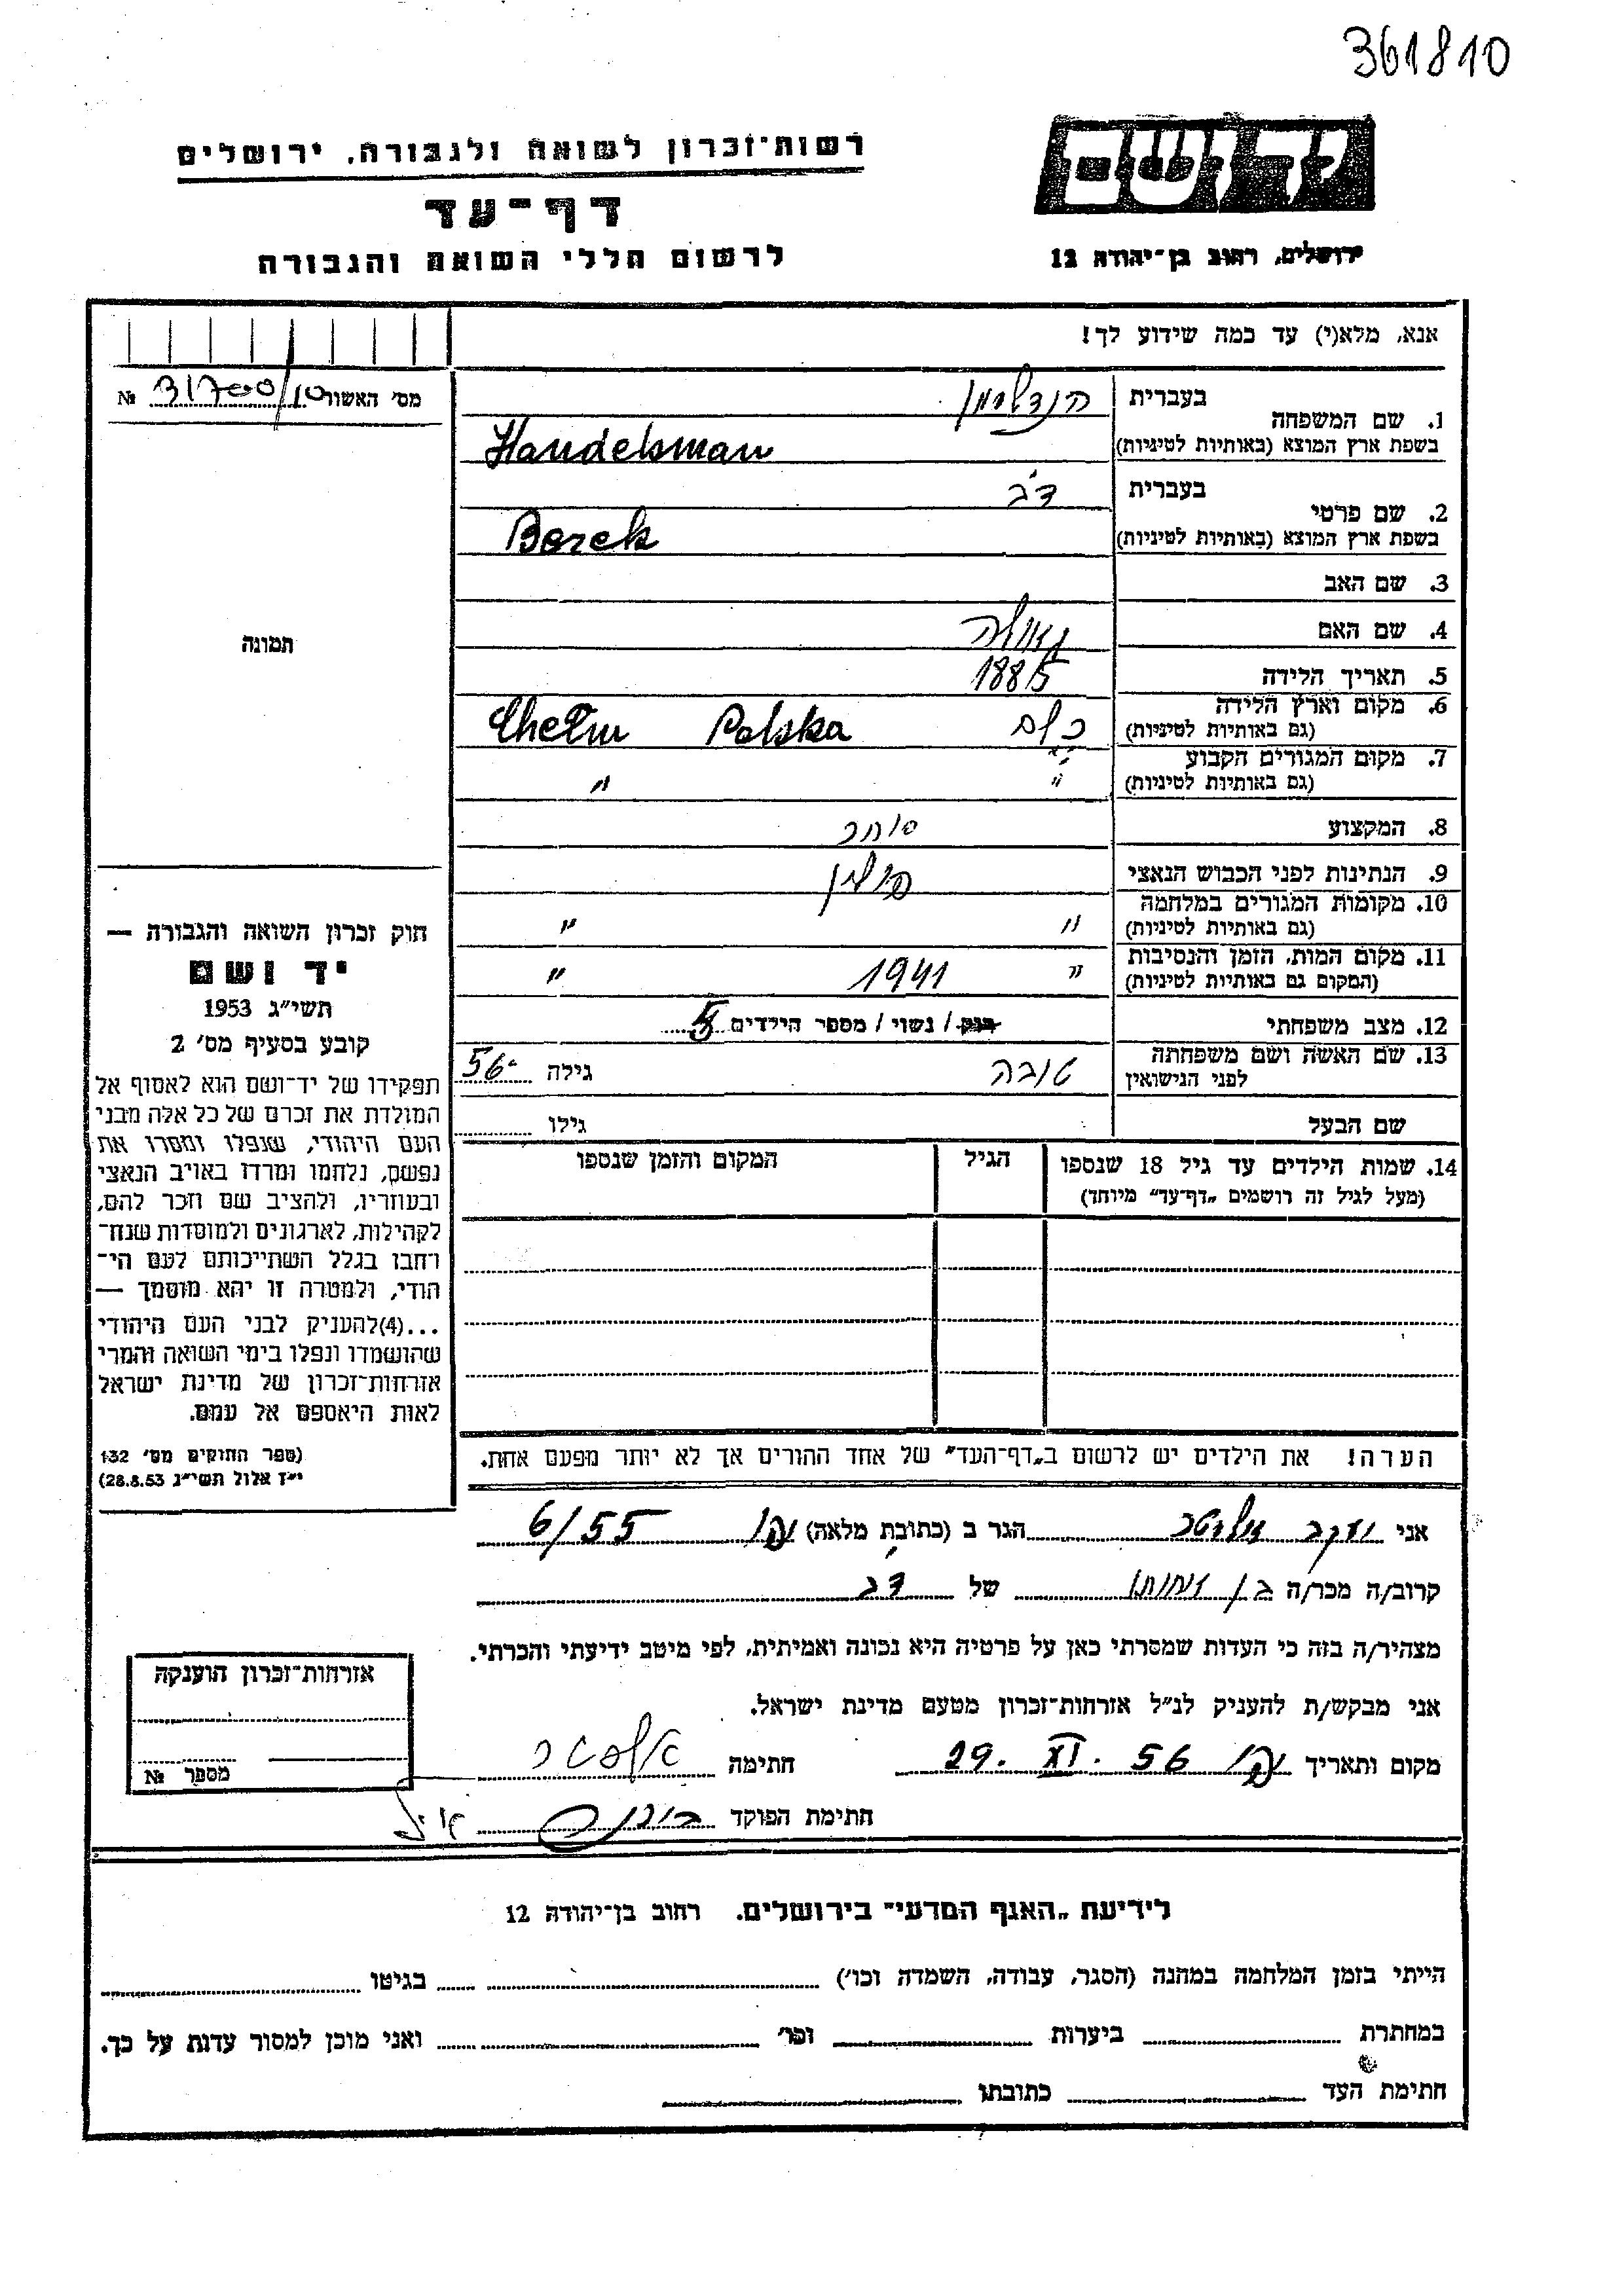 361810
יד ושם
רשות־זכרון לשואה ולגבורה, ירושלים
דף־עד
ירושלים, רחוב בן־יהודה 12
לרשום חללי השואה והגבורה
אנא, מלא(י) עד כמה שידוע לך!
מס׳ האשור 31700/10 №
1. שם המשפחה
בעברית הנדלסמן
בשפת ארץ המוצא (באותיות לטיניות) Handelsman
2. שם פרטי
בעברית דב
בשפת ארץ המוצא (באותיות לטיניות) Berek
3. שם האב
4. שם האם
5. תאריך הלידה 1885
6. מקום וארץ הלידה
(גם באותיות לטיניות) כלם Chełm Polska
7. מקום המגורים הקבוע
(גם באותיות לטיניות) " "
8. המקצוע סוחר
9. הנתינות לפני הכבוש הנאצי פולין
10. מקומות המגורים במלחמה
(גם באותיות לטיניות) " "
11. מקום המות, הזמן והנסיבות
(המקום גם באותיות לטיניות) " 1941 "
12. מצב משפחתי רוק / נשוי / מספר הילדים 5
13. שם האשה ושם משפחתה
לפני הנישואין טובה גילה 56
שם הבעל גילו
14. שמות הילדים עד גיל 18 שנספו
(מעל לגיל זה רושמים „דף־עד" מיוחד)
הגיל
המקום והזמן שנספו
הערה! את הילדים יש לרשום ב„דף־העד" של אחד ההורים אך לא יותר מפעם אחת.
תמונה
חוק זכרון השואה והגבורה —
יד ושם
תשי״ג 1953
קובע בסעיף מס׳ 2
תפקידו של יד־ושם הוא לאסוף אל
המולדת את זכרם של כל אלה מבני
העם היהודי, שנפלו ומסרו את
נפשם, נלחמו ומרדו באויב הנאצי
ובעוזריו, ולהציב שם וזכר להם,
לקהילות, לארגונים ולמוסדות שנח־
רחבו בגלל השתייכותם לעם הי־
הודי, ולמטרה זו יהא מוסמך —
...(4)להעניק לבני העם היהודי
שהושמדו ונפלו בימי השואה והמרי
אזרחות־זכרון של מדינת ישראל
לאות היאספם אל עמם.
(ספר החוקים מס׳ 132
י״ז אלול תשי״ג 28.8.53)
אני יעקב הגר ב (כתובת מלאה) יפו 6/55
קרוב/ה מכר/ה בן אחותו של דב
מצהיר/ה בזה כי העדות שמסרתי כאן על פרטיה היא נכונה ואמיתית, לפי מיטב ידיעתי והכרתי.
אני מבקש/ת להעניק לנ״ל אזרחות־זכרון מטעם מדינת ישראל.
מקום ותאריך יפו 29. XI. 56 חתימה
חתימת הפוקד
אזרחות־זכרון הוענקה
מספר №
לידיעת „האגף המדעי" בירושלים, רחוב בן־יהודה 12
הייתי בזמן המלחמה במחנה (הסגר, עבודה, השמדה וכו׳) בגיטו
במחתרת ביערות וכו׳ ואני מוכן למסור עדות על כך.
חתימת העד כתובתו